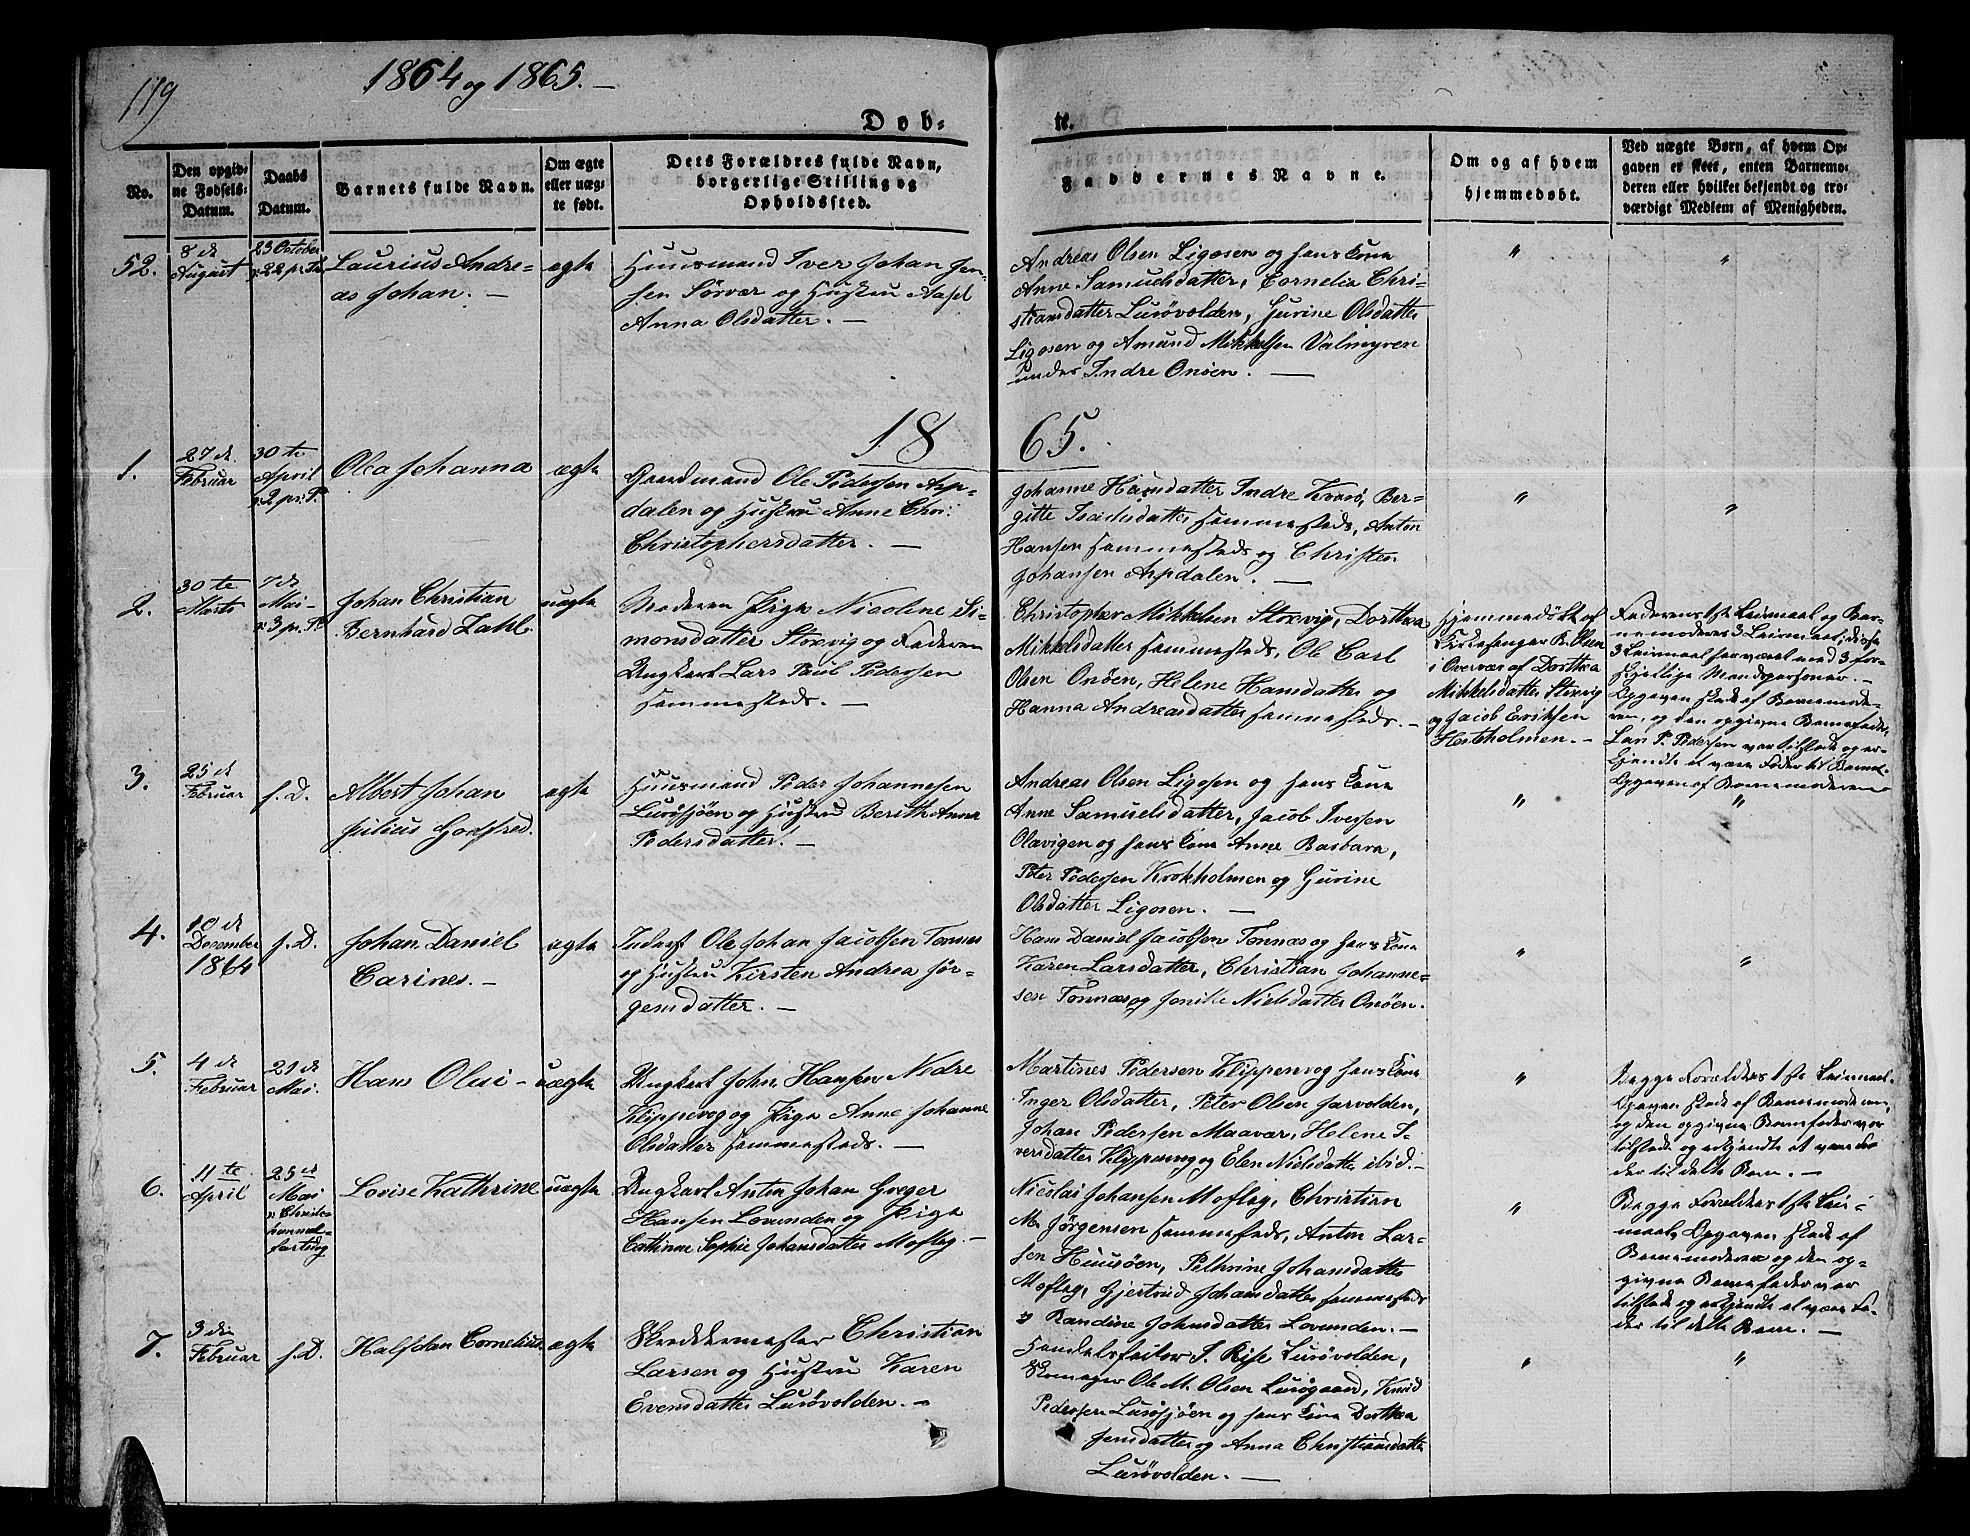 119
1864 og 1865. —
Døb-
te.
No.
Den opgiv-
ne Fødsels-
Datum.
Daabs
Datum.
Barnets fulde Navn.
Om ægte
eller uæg-
te født.
Dets Forældres fulde Navn,
borgerlige Stilling og
Opholdssted.
Faddernes Navne.
Om og af hvem
hjemmedøbt.
Ved uægte Børn, af hvem Op-
gaven er skeet, enten Barnemo-
deren eller hvilket bekjendt og tro-
værdigt Medlem af Menigheden.
52.
8de
August
23 October
22 p. Tr.
Laurius Andre-
as Johan. —
ægte
Huusmand Iver Johan Jen-
sen Sørvær og Hustru
Anna Olsdatter. —
Andreas Olsen Ligosen og hans Kone
Anne Samuelsdatter, Cornelia Chri-
stiansdatter Lurøvolden, Gurine Olsdatter
Ligosen og Amund Mikkelsen Valmyren
under Indre Onøen. —
"
"
1865.
1.
27de
Februar
30te
April
2 p. P.
Olea Johanna
ægte
Gaardmand Ole Pedersen Asp-
dalen og Hustru Anne Chri:
Christophersdatter. —
Johanne Hansdatter Indre Kvarø, Ber-
gitte Isaksdatter sammesteds, Anton
Hansen sammesteds og Christen
Johansen Aspdalen. —
"
"
2.
30te
Marts
7de
Mai
3 p. P.
Johan Christian
Bernhard Zahl.
uægte
Moderen Pige Nicoline Si-
monsdatter Storvig og Faderen
Ungkarl Lars Paul Pedersen
sammesteds. —
Christopher Mikkelsen Storvig, Dorthea
Mikkelsdatter sammesteds, Ole Carl
Olsen Onøen, Helene Hansdatter og
Hanna Andreasdatter sammesteds. —
Hjemmedøbt af
Kirkesanger B. Olsen
i Overvær af Dorthea
Mikkelsdatter Storvig
og Jacob Eriksen
Hestholmen. —
Faderens 1ste Leiermaal og Bar-
nemoderes 3 Leiermaal; disse
3 Leiermaal har været med 3 for-
skjellige Mandspersoner. —
Opgaven skede af Barnemode-
ren, og den opgivne Barnefader,
Lars P. Pedersen var tilstede og er-
kjendte at være Fader til Barnet.
Opgaven af Barnemoderen
3.
25de
Februar
s. D.
Albert Johan
Julius Godfred.
ægte
Huusmand Peder Johannesen
Lurøsjøen og Hustru Berith Anna
Pedersdatter. —
Andreas Olsen Ligosen og hans Kone
Anne Samuelsdatter, Jacob Iversen
Olavigen og hans Kone Anne Barbara,
Peter Pedersen Krokholmen og Gurine
Olsdatter Ligosen. —
"
"
4.
10de
December
1864
s. D.
Johan Daniel
Carines. —
ægte
Inderst Ole Johan Jacobsen Tonnes
og Hustru Kirsten Andrea Jør-
gensdatter. —
Hans Daniel Jacobsen Tonnæs og hans Kone
Karen Larsdatter, Christian Johanne-
sen Tonnæs og Jonike Nielsdatter Onøen.
"
"
5.
4de
Februar
21de
Mai.
Hans Olai —
uægte
Ungkarl John Hansen Nedre
Klippevog og Pige Anne Johanne
Olsdatter sammesteds. —
Martines Pedersen Klippenvog hans Kone
Inger Olsdatter, Peter Olsen Jarvolden,
Johan Pedersen Maavær, Helene I-
versdatter Klippevng og Elen Nielsdatter ibid. —
"
Begge Forældres 1ste Leiermaal.
Opgaven skede af Barnemoderen,
og den opgivne Barnefader var
tilstede og erkjendte at være Fa-
der til dette Barn. —
6.
11te
April
25de
Mai
Christi
himmel-
fartsdag
Lovise Kathrine
uægte
Ungkarl Anton Johan Greger
Hansen Lovunden og Pige
Cathrine Sophie Johansdatter Moflag. —
Nicolai Johansen Moflag, Christian
M. Jørgensen sammesteds, Anton Lar-
sen Huusøen, Pethrine Johansdatter
Moflag, Gjertrud Johansdatter sammesteds
og Randine Johnsdatter Lovunden. —
"
Begge Forældres 1ste Leier-
maal, Opgaven skede af
Barnemoderen og den op-
givne Barnefader var
tilstede og erkjendte at være Fa-
der til dette Barn. —
7.
3die
Februar
s. D.
Halfdan Cornelius
ægte
Skreddermester Christian
Larsen og Hustru Karen
Evensdatter Lurøvolden. —
Handelsfaktor I. Rise Lurøvolden,
Skomager Ole M. Olsen Lurøgaard, Knud
Pedersen Lurøsjøen og hans Kone Dorthea
Jensdatter og Anna Christiansdatter
Lurøvolden. —
"
"